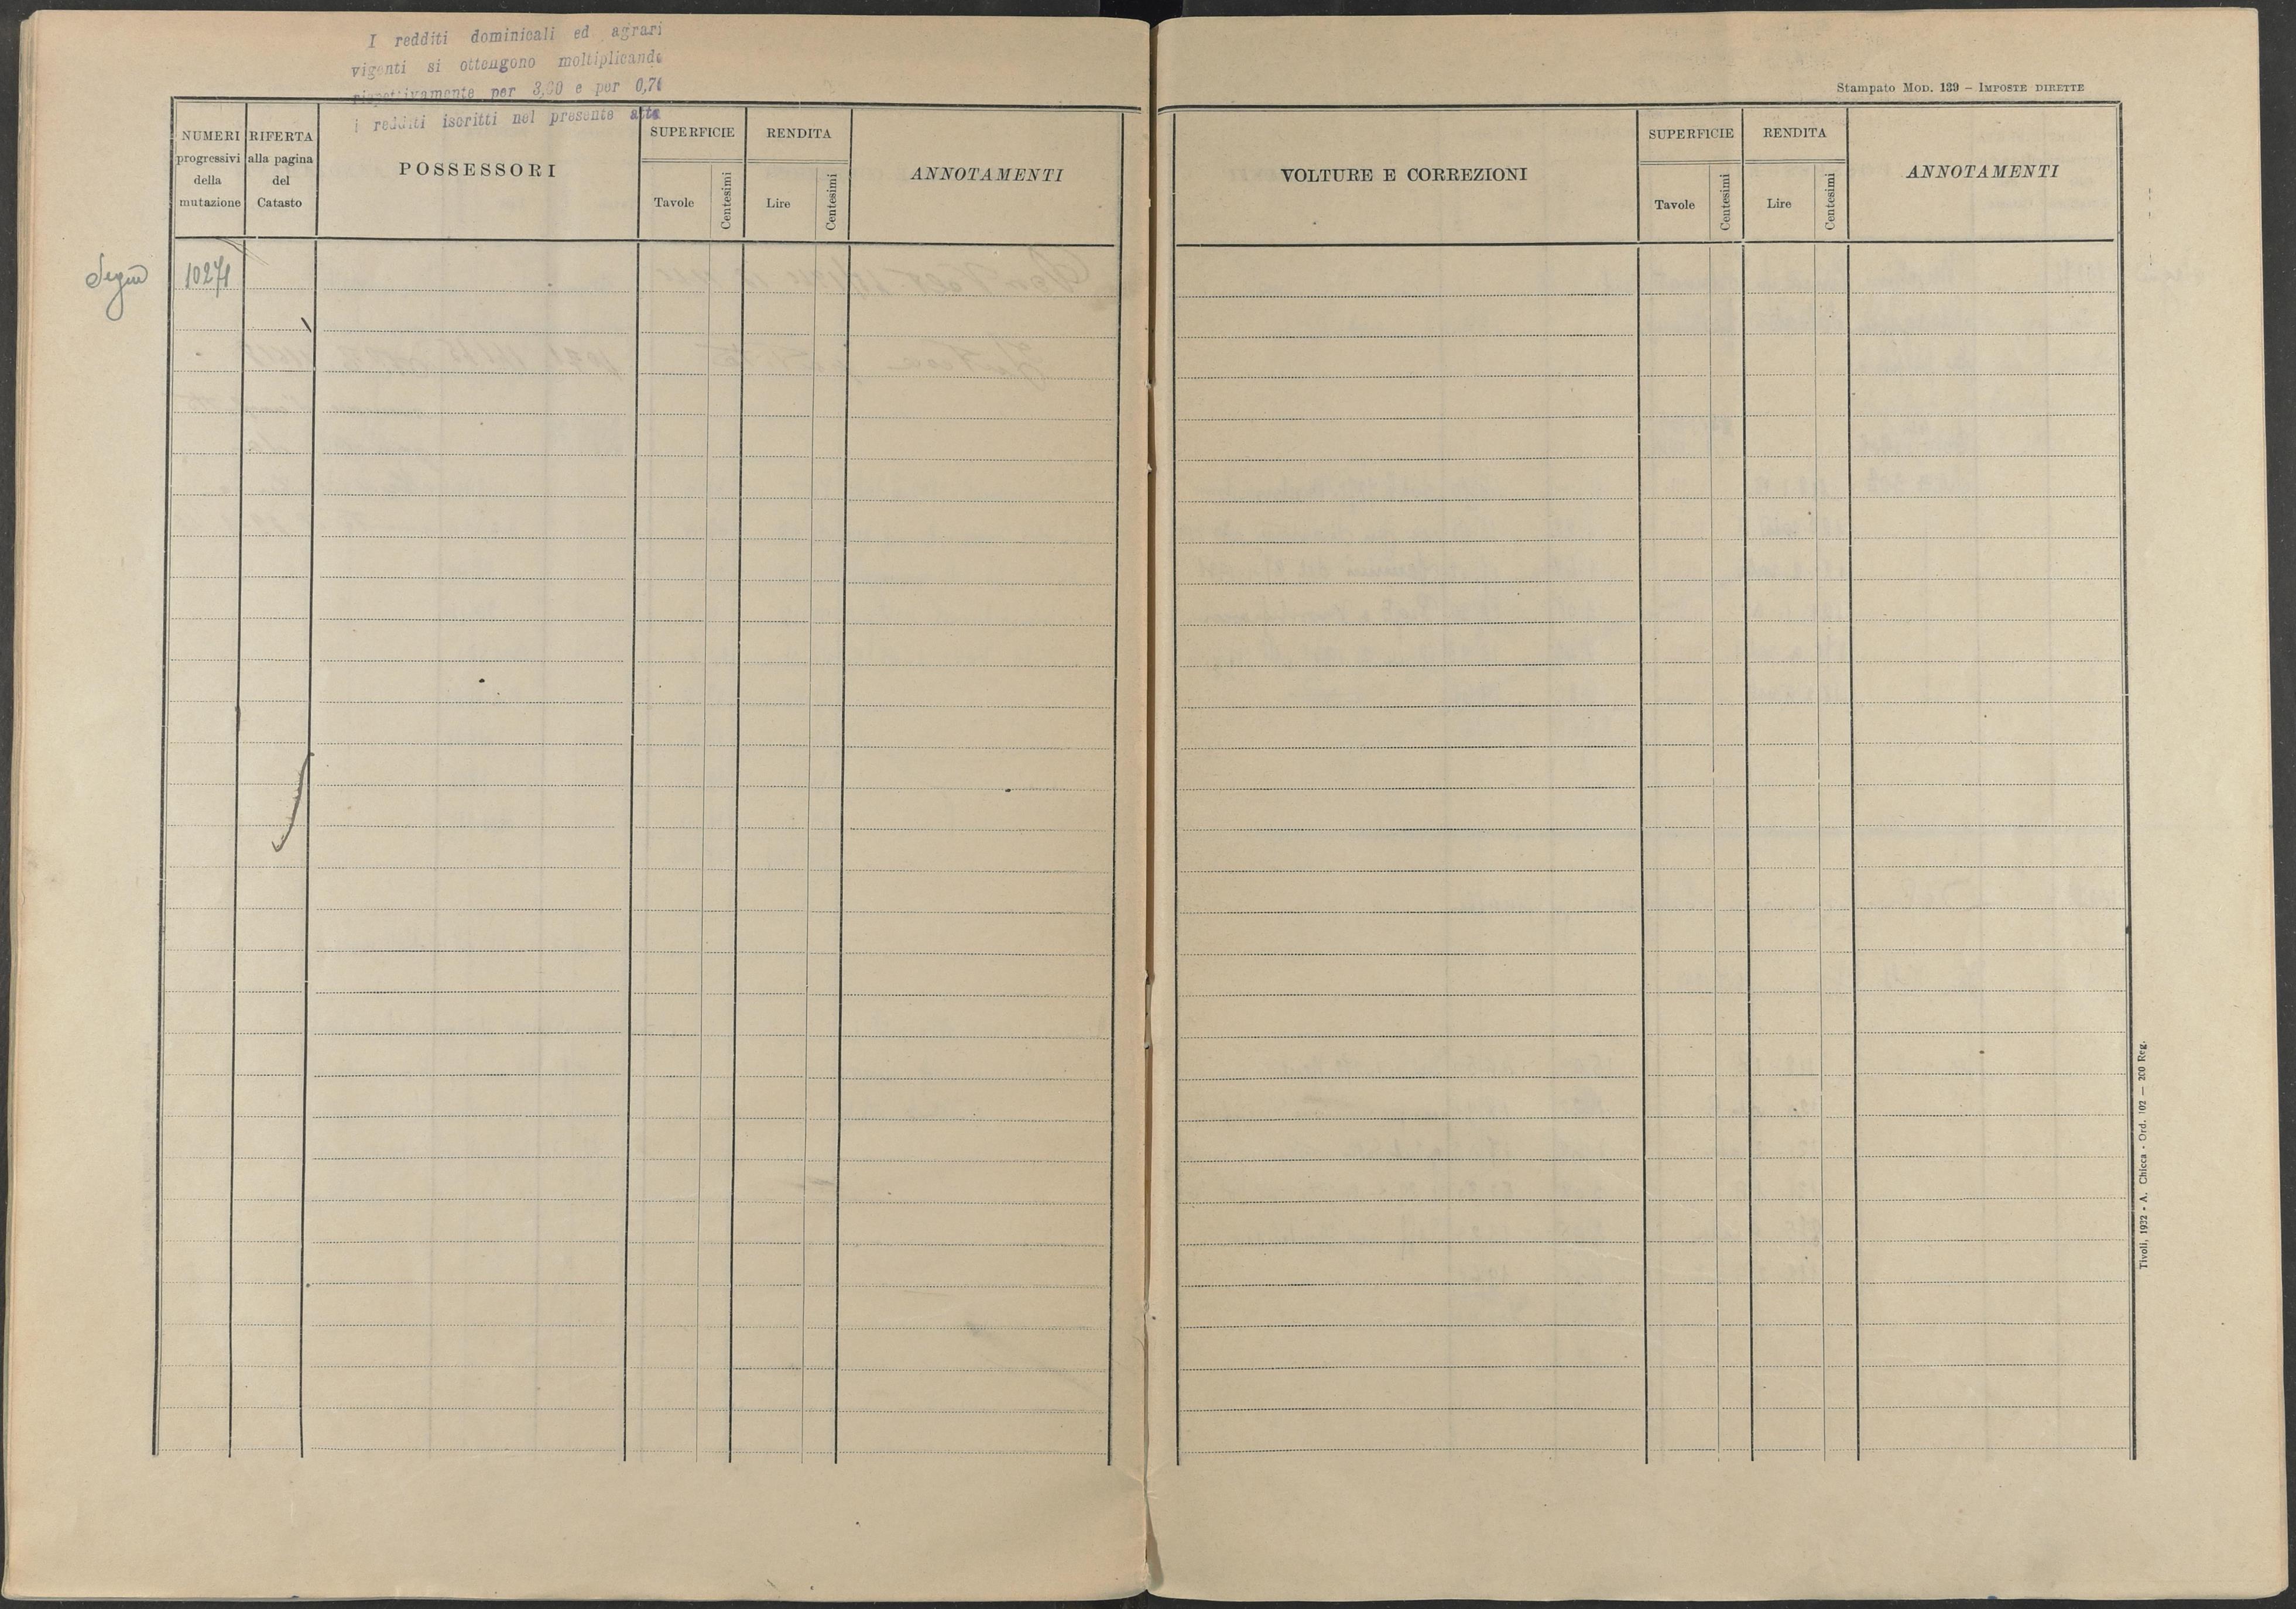 I redditi dominicali ed agrari
vigenti si ottengono moltiplicando
rispettivamente per 3,00 e per 0,70
i redditi iscritti nel presente atto
NUMERI
progressivi
della
mutazione
RIFERTA
alla pagina
del
Catasto
POSSESSORI
SUPERFICIE
Tavole
Centesimi
RENDITA
Lire
Centesimi
ANNOTAMENTI
Segue 10271
Stampato Mod. 139 – Imposte dirette
VOLTURE E CORREZIONI
SUPERFICIE
Tavole
Centesimi
RENDITA
Lire
Centesimi
ANNOTAMENTI
Tivoli, 1932 - A. Chicca - Ord. 102 — 200 Reg.